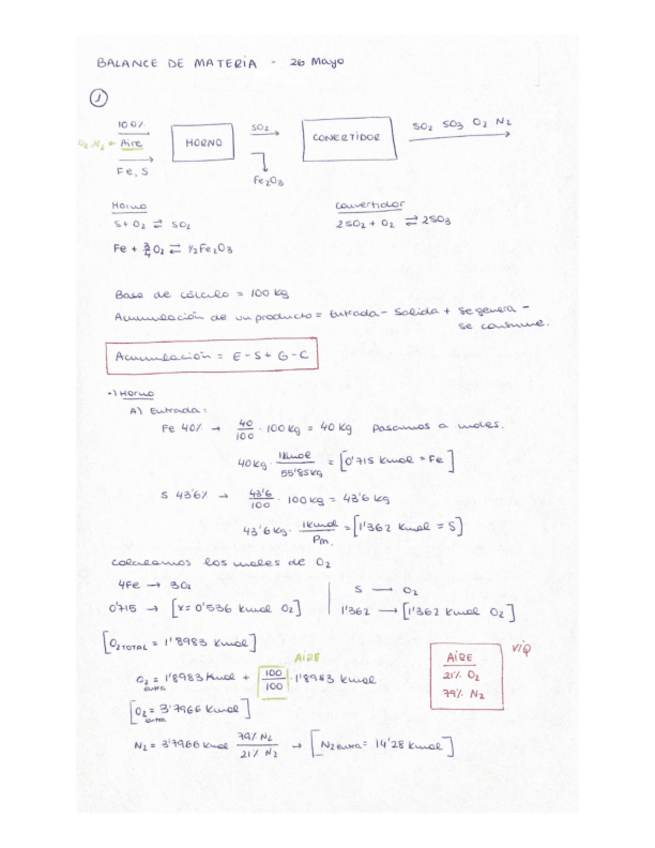 BALANCE DE MATERIA - 26 Mayo
1
100% SO2 SO2 SO3 O2 N2
O2, N2 ← Aire HORNO CONERTIDOR
Fe, S Fe2O3
Horno Convertidor
S + O2 ⇄ SO2 2SO2 + O2 ⇄ 2SO3
Fe + 3/4 O2 ⇄ 1/2 Fe2O3
Base de cálculo = 100 kg
Acumulación de un producto = Entrada - Salida + se genera -
se consume.
Acumulación = E - S + G - C
•) Horno
A) Entrada:
Fe 40% → 40/100 · 100 kg = 40 kg Pasamos a moles.
40 kg · 1 kmol/55'85 kg = [0'715 kmol = Fe]
S 43'6% → 43'6/100 · 100 kg = 43'6 kg
43'6 kg · 1 kmol/Pm. = [1'362 kmol = S]
calculamos los moles de O2
4Fe → 3O2 S → O2
0'715 → [x = 0'536 kmol O2] 1'362 → [1'362 kmol O2]
[O2 TOTAL = 1'8983 kmol]
AIRE
O2 entra = 1'8983 kmol + 100/100 · 1'8983 kmol
[O2 entra = 3'7966 kmol]
N2 = 3'7966 kmol 79% N2/21% N2 → [N2 entra = 14'28 kmol]
AIRE VIP
21% O2
79% N2